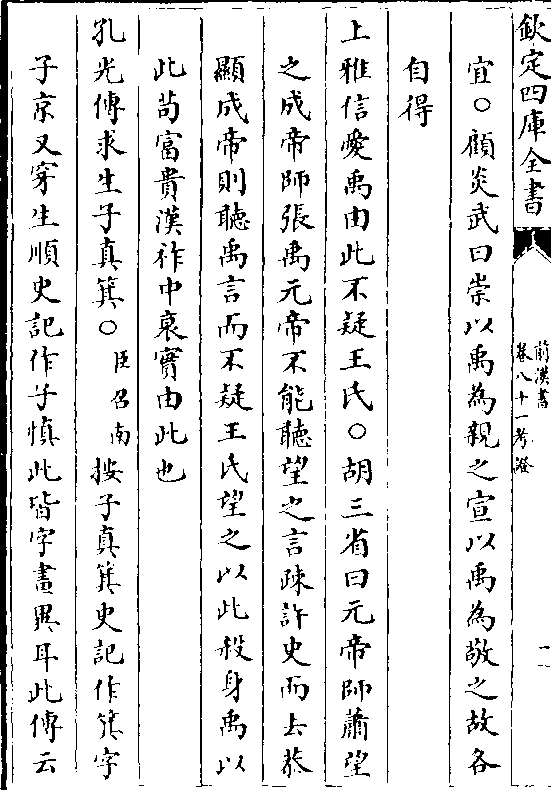 欽定四庫全書
前漢書
卷八十一考證
二
宜○顧炎武曰崇以禹為親之宣以禹為敬之故各
自得
上雅信愛禹由此不疑王氏○胡三省曰元帝師蕭望
之成帝師張禹元帝不能聽望之言疎許史而去恭
顯成帝則聽禹言而不疑王氏望之以此殺身禹以
此苟富貴漢祚中衰實由此也
孔光傳求生子真箕○臣召南按子真箕史記作箕字
子京又穿生順史記作子慎此皆字畫異耳此傳云